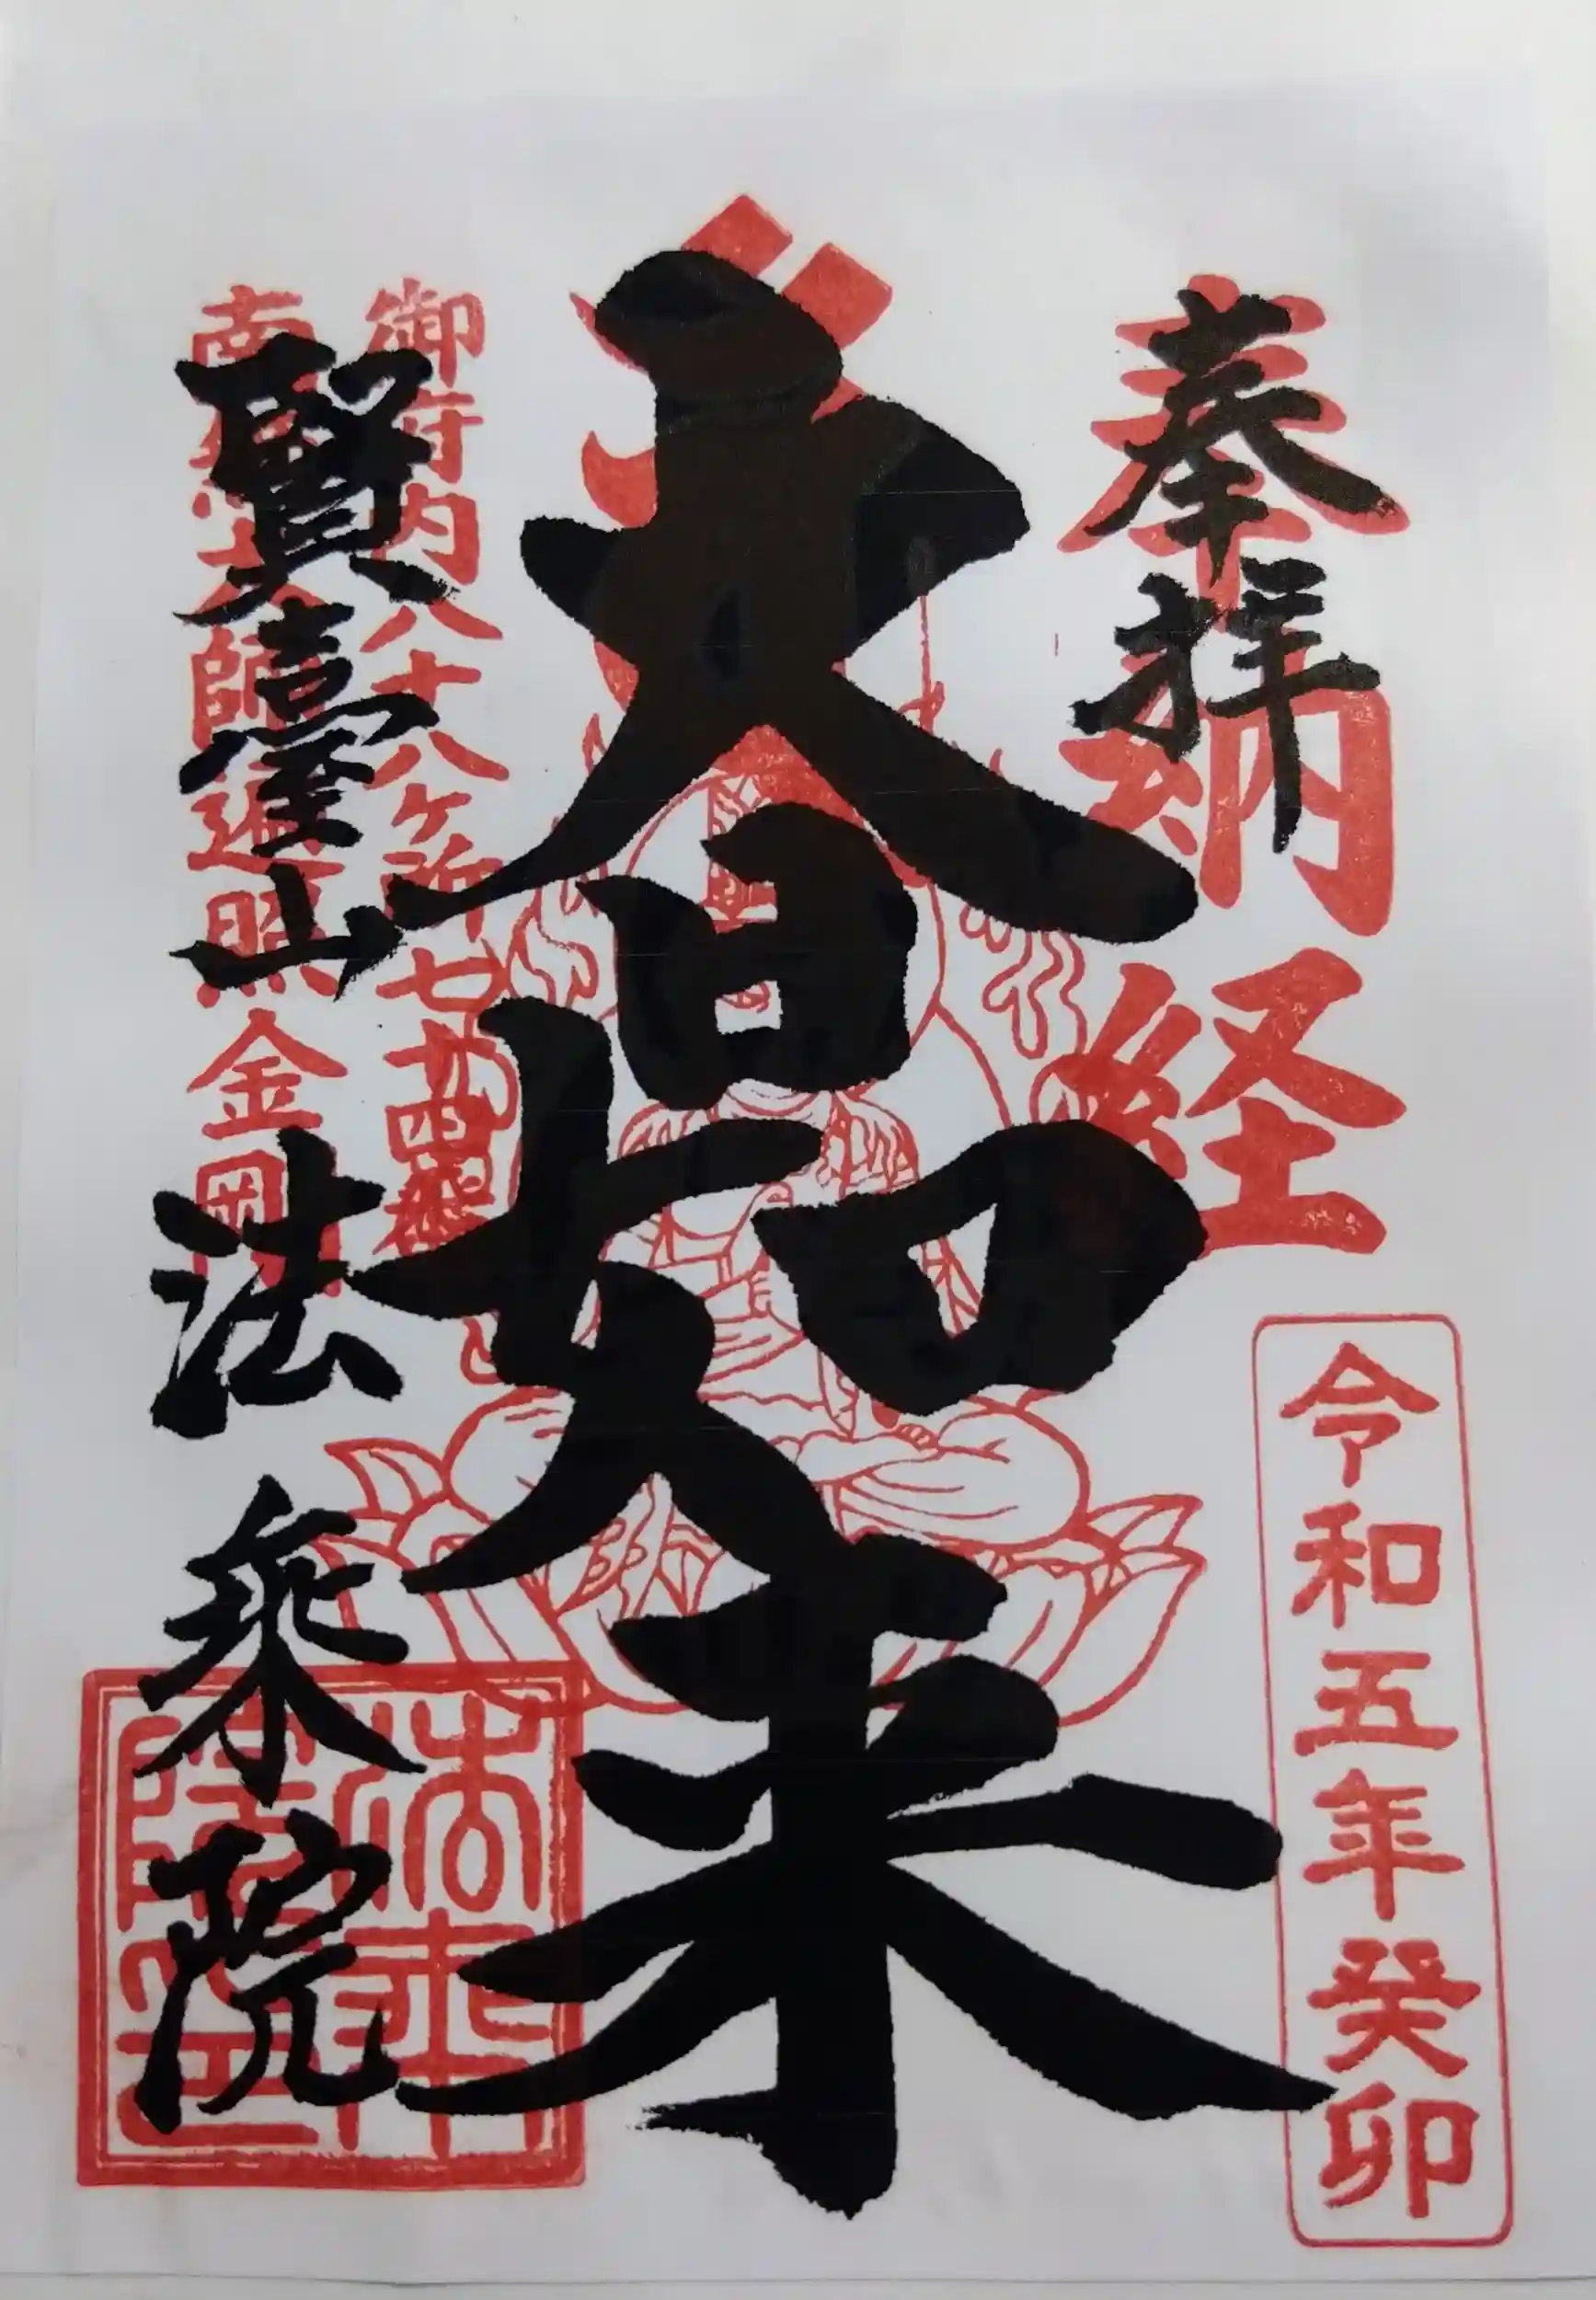 奉拝
奉納経
令和五年癸卯
大日如来
御府内八十八ヶ所七十四番
南無大師遍照金剛
賢臺山
法乗院